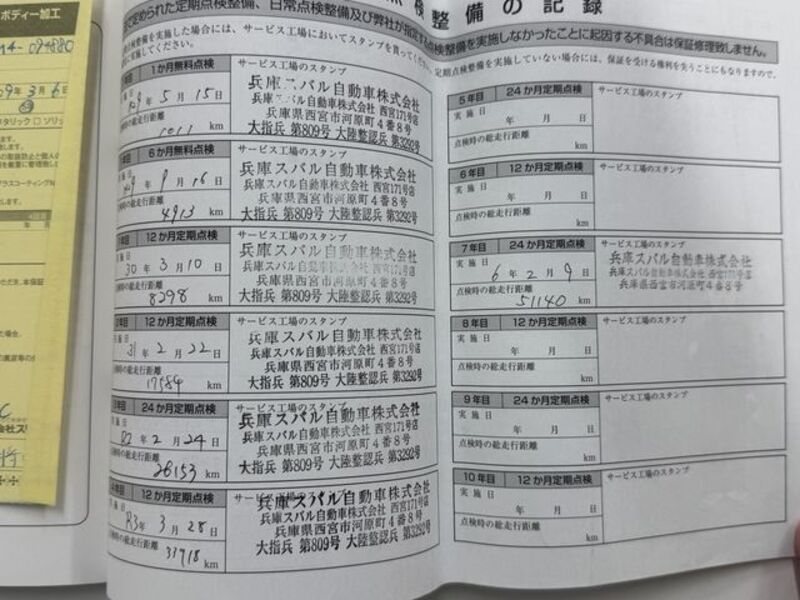 ボディー加工
M4-094880
09年3月6日
タリック □ ソリッ
点検整備の記録
で定められた定期点検整備、日常点検整備及び弊社が指定する点検整備を実施しなかったことに起因する不具合は保証修理致しません。
点検整備を実施した場合には、サービス工場においてスタンプを貰ってください。定期点検整備を実施していない場合には、保証を受ける権利を失うことにもなりますので、
に実施してください。
1か月無料点検
サービス工場のスタンプ
施日
H29年5月15日
検時の総走行距離
1011 km
兵庫スバル自動車株式会社
兵庫スバル自動車株式会社 西宮171号店
兵庫県西宮市河原町4番8号
大指兵 第809号 大陸整認兵 第3292号
年目 6か月無料点検
サービス工場のスタンプ
施日
H29年9月16日
検時の総走行距離
4913 km
兵庫スバル自動車株式会社
兵庫スバル自動車株式会社 西宮171号店
兵庫県西宮市河原町4番8号
大指兵 第809号 大陸整認兵 第3292号
年目 12か月定期点検
サービス工場のスタンプ
施日
30年3月10日
検時の総走行距離
8298 km
兵庫スバル自動車株式会社
兵庫スバル自動車株式会社 西宮171号店
兵庫県西宮市河原町4番8号
大指兵 第809号 大陸整認兵 第3292号
2年目 12か月定期点検
サービス工場のスタンプ
施日
31年2月22日
検時の総走行距離
17584 km
兵庫スバル自動車株式会社
兵庫スバル自動車株式会社 西宮171号店
兵庫県西宮市河原町4番8号
大指兵 第809号 大陸整認兵 第3292号
年目 24か月定期点検
サービス工場のスタンプ
施日
R2年2月24日
検時の総走行距離
26153 km
兵庫スバル自動車株式会社
兵庫スバル自動車株式会社 西宮171号店
兵庫県西宮市河原町4番8号
大指兵 第809号 大陸整認兵 第3292号
年目 12か月定期点検
サービス工場のスタンプ
施日
R3年3月28日
点検時の総走行距離
33918 km
兵庫スバル自動車株式会社
兵庫スバル自動車株式会社 西宮171号店
兵庫県西宮市河原町4番8号
大指兵 第809号 大陸整認兵 第3292号
5年目 24か月定期点検
サービス工場のスタンプ
実施日
年 月 日
点検時の総走行距離
km
6年目 12か月定期点検
サービス工場のスタンプ
実施日
年 月 日
点検時の総走行距離
km
7年目 24か月定期点検
サービス工場のスタンプ
実施日
6年2月9日
点検時の総走行距離
51140 km
兵庫スバル自動車株式会社
兵庫スバル自動車株式会社 西宮171号店
兵庫県西宮市河原町4番8号
8年目 12か月定期点検
サービス工場のスタンプ
実施日
年 月 日
点検時の総走行距離
km
9年目 24か月定期点検
サービス工場のスタンプ
実施日
年 月 日
点検時の総走行距離
km
10年目 12か月定期点検
サービス工場のスタンプ
実施日
年 月 日
点検時の総走行距離
km